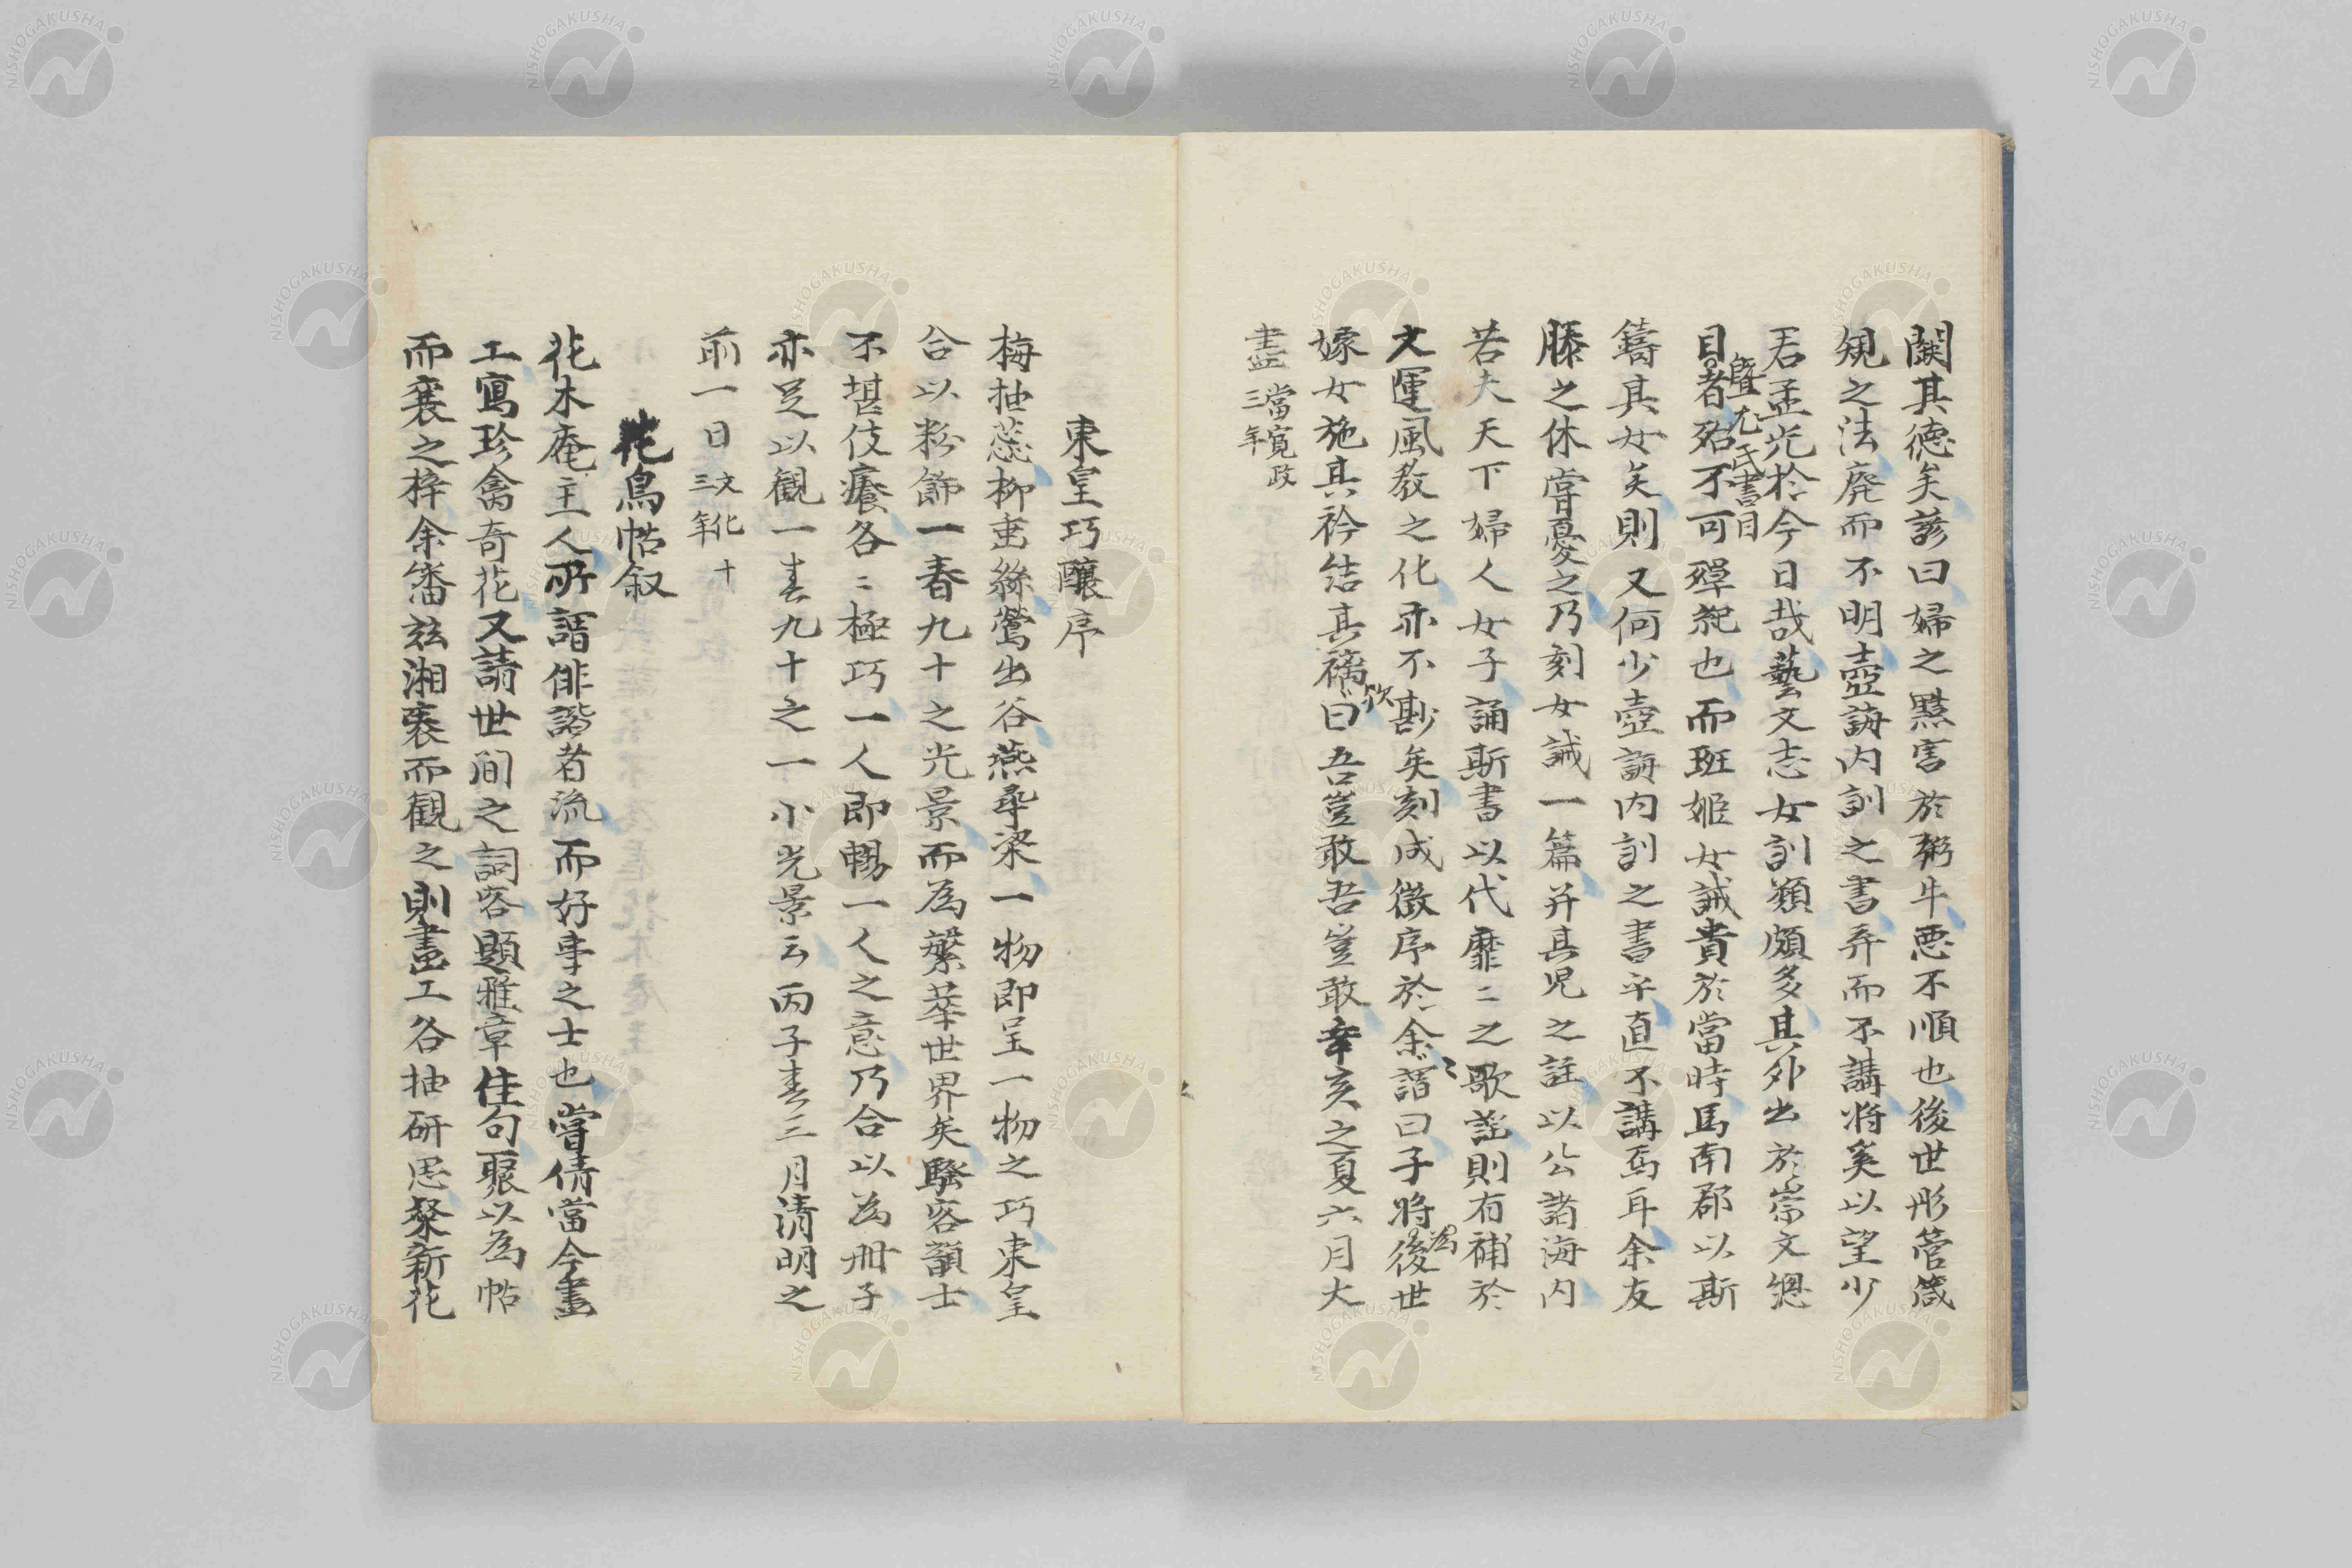 闕其徳矣諺曰婦之黠害於粥牛悪不順也後世彤管箴
規之法廃而不明壼誨内訓之書弃而不講将奚以望少
君孟光於今日哉藝文志女訓類頗多其外出於崇文總
目者殆不可殫紀也而班姫女誡貴於當時馬南郡以斯
曁尤氏書目
鑄其女矣則又何少壼誨内訓之書乎直不講焉耳余友
滕之休嘗憂之乃刻女誡一篇并其児之註以公諸海内
若夫天下婦人女子誦斯書以代靡〻之歌謡則有補於
文運風教之化亦不尠矣刻成徴序於余〻謂曰子将後世
為
嫁女施其衿結其褵曰吾豈敢吾豈敢辛亥之夏六月大
欤
盡 當寛政
三年
東皇巧釀序
梅抽蕊柳垂絲鶯出谷燕尋梁一物即呈一物之巧東皇
合以粉飾一春九十之光景而為繁華世界矣騒客韻士
不堪伎癢各〻極巧一人即暢一人之意乃合以為冊子
亦足以観一春九十之一小光景云丙子春三月清明之
前一日 文化十
三年
花鳥帖叙
花木庵主人所謂俳諧者流而好事之士也嘗倩當今畫
工寫珍禽奇花又請世間之詞客題雅章佳句聚以為帖
而襄之梓余繙玆湘裘而観之則畫工各抽研思發新花